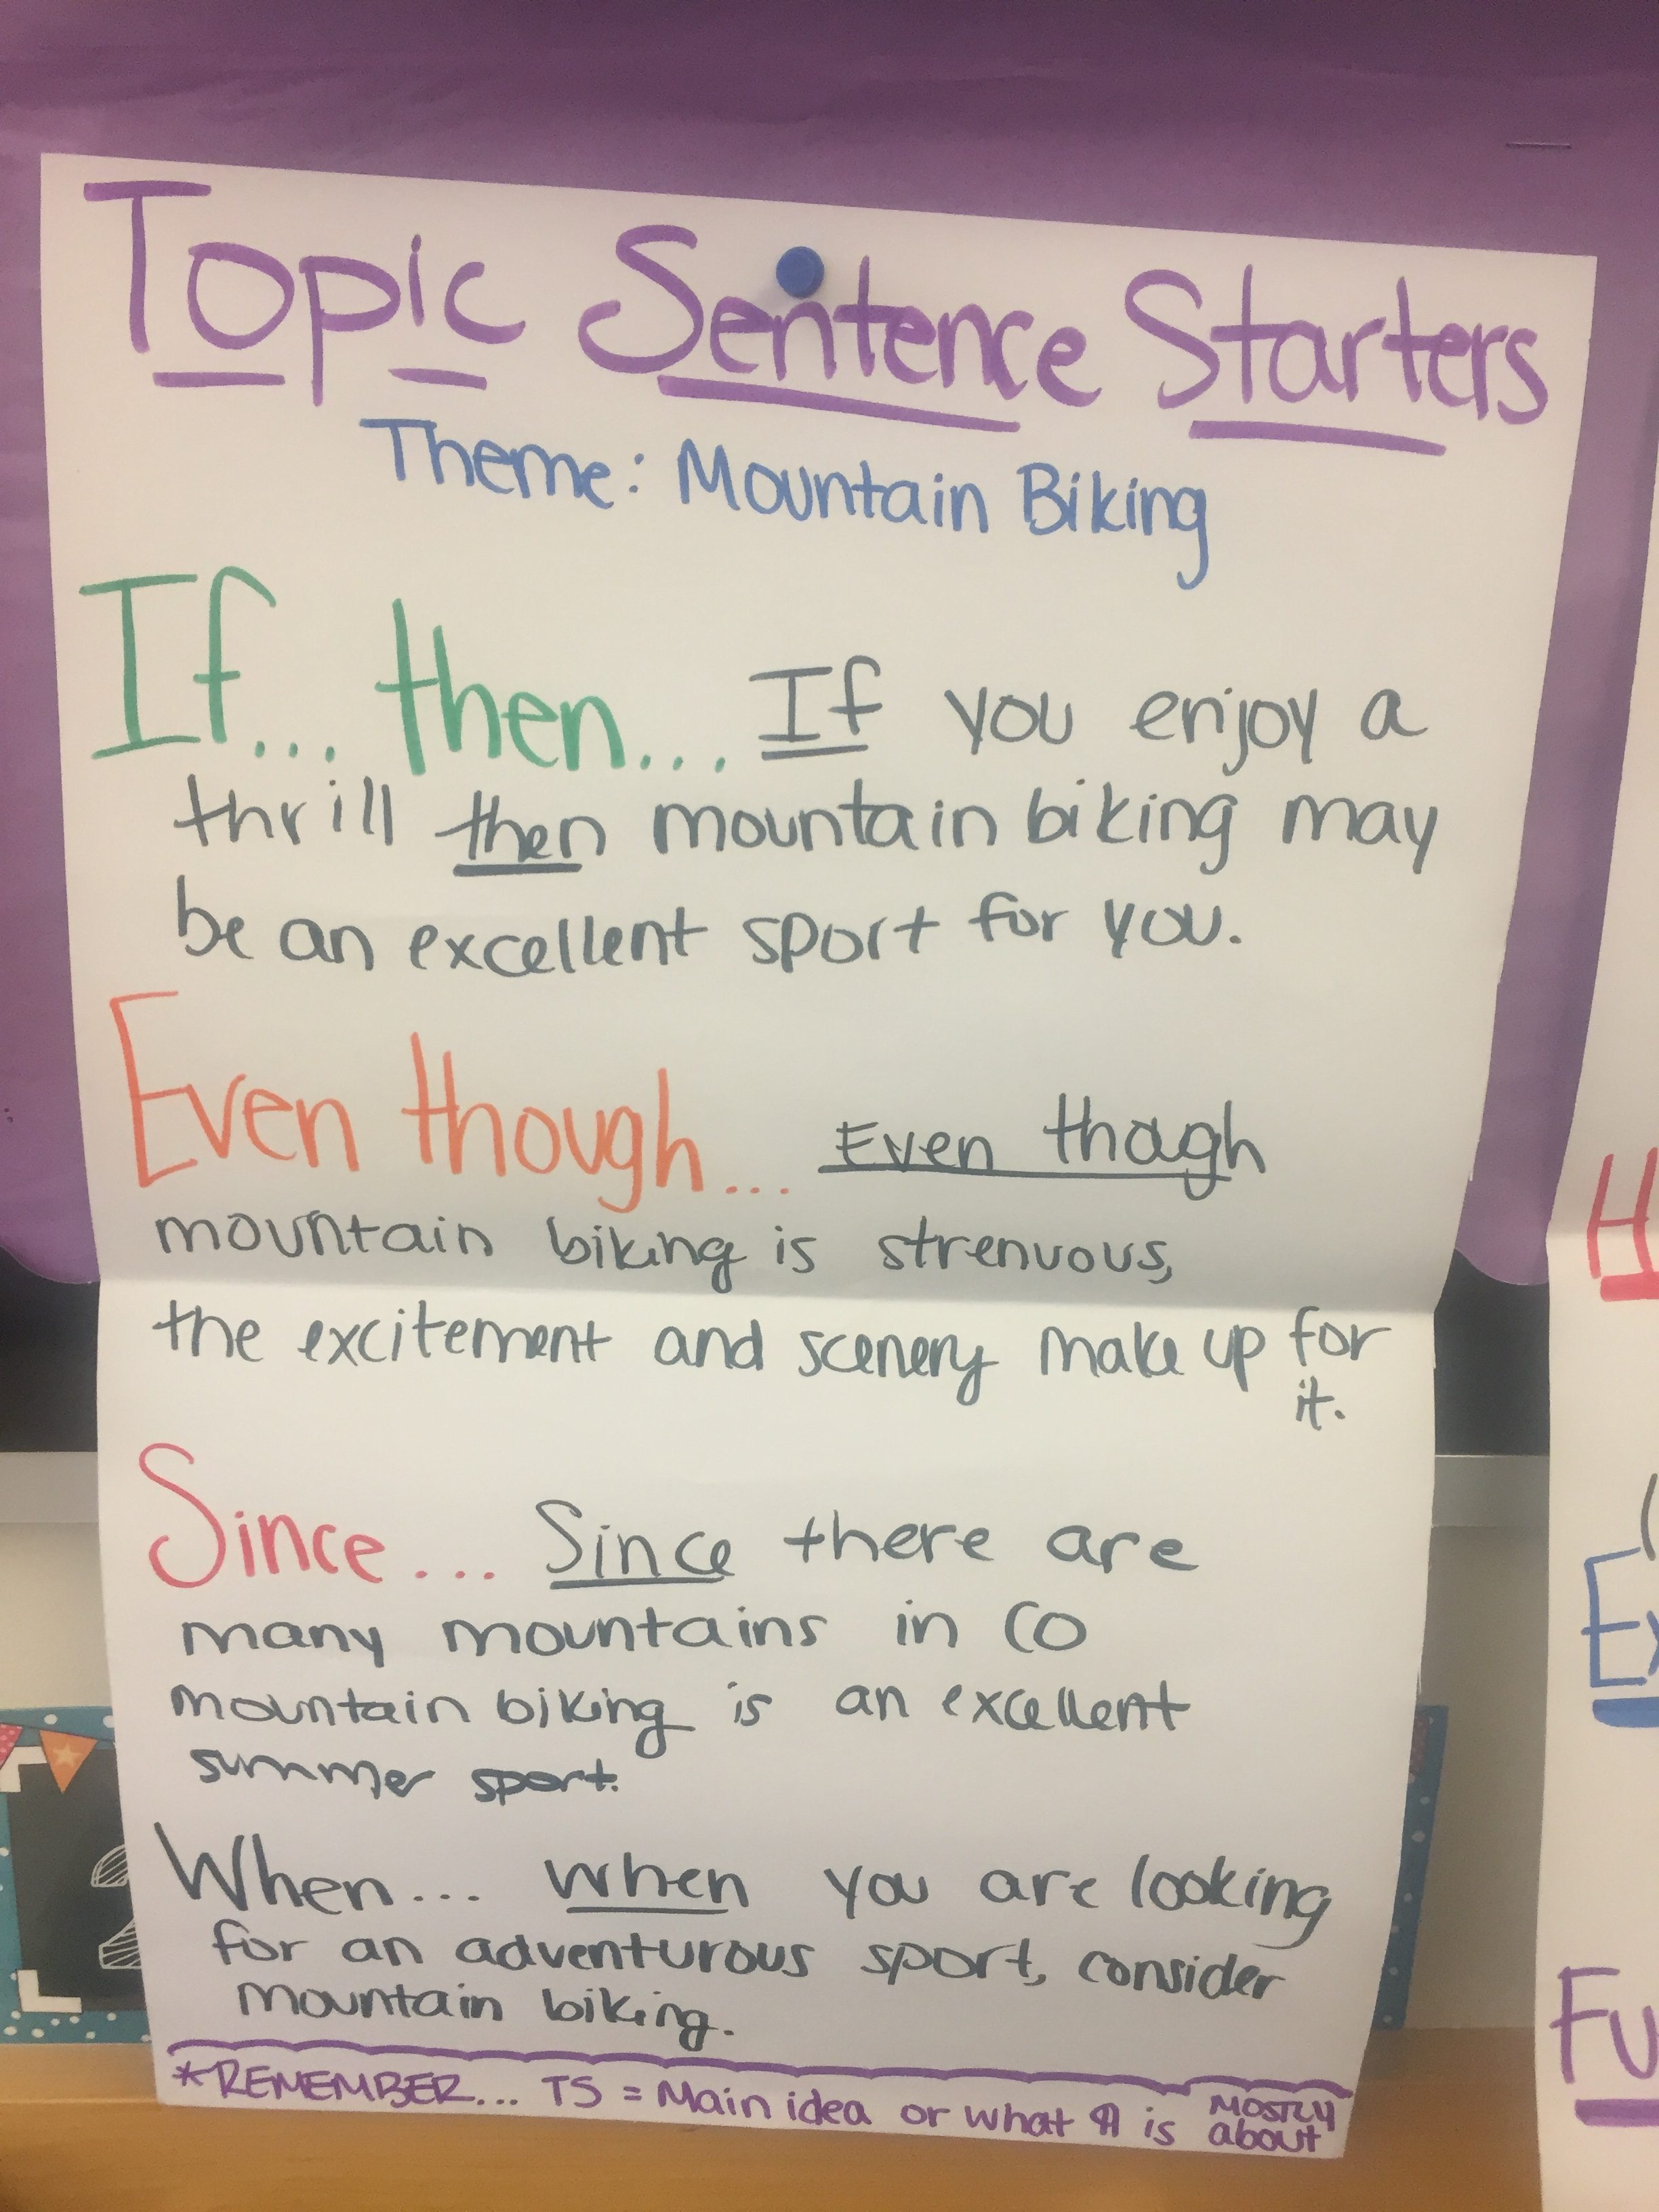 Topic Sentence Starters
Theme: Mountain Biking
If... then... If you enjoy a
thrill then mountain biking may
be an excellent sport for you.
Even though... Even though
mountain biking is strenuous,
the excitement and scenery make up for
it.
Since... Since there are
many mountains in CO
mountain biking is an excellent
summer sport.
When... when you are looking
for an adventurous sport, consider
mountain biking.
*REMEMBER... TS = Main idea or what ¶ is MOSTLY
about
H
Ex
Fu
2